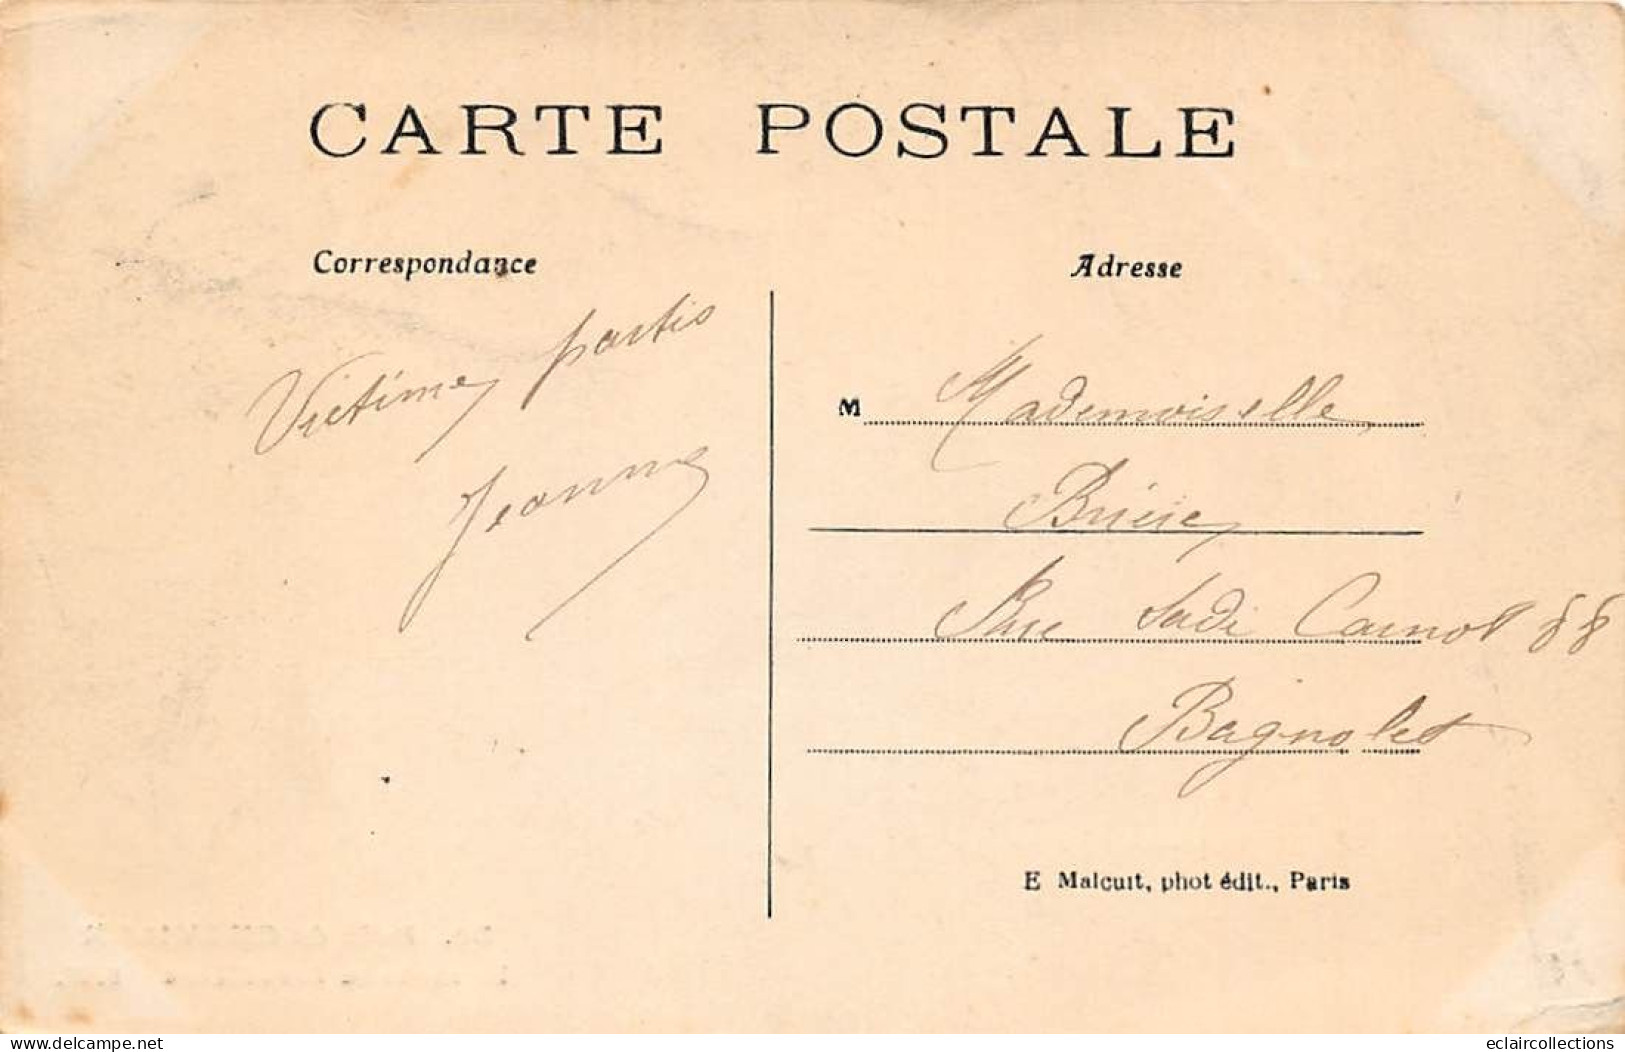 CARTE POSTALE
Correspondance
Adresse
Victime partis
Jeanne
M Mademoiselle
Brière
Rue Sadi Carnot 88
Bagnolet
E Malcuit, phot édit., Paris
eclaircollections